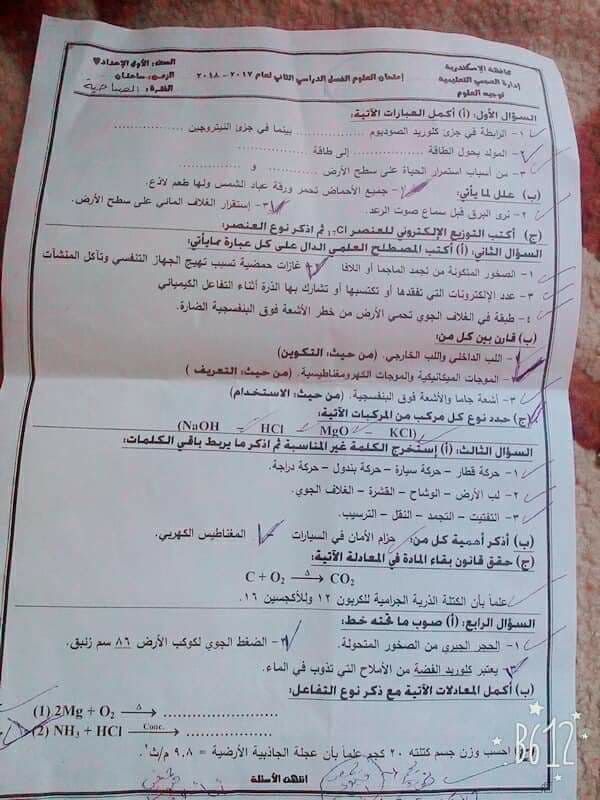 محافظة الإسكندرية
إدارة العجمي التعليمية
توجيه العلوم
إمتحان العلوم الفصل الدراسي الثاني لعام ٢٠١٧ - ٢٠١٨
الصف: الأول الإعدادي
الزمن: ساعتان
الفترة: الصباحية
السؤال الأول: (أ) أكمل العبارات الآتية:
١- الرابطة في جزئ كلوريد الصوديوم .................. بينما في جزئ النيتروجين ..................
٢- المولد يحول الطاقة .................. إلى طاقة ..................
٣- من أسباب استمرار الحياة على سطح الأرض .................. و ..................
(ب) علل لما يأتي: ١- جميع الأحماض تحمر ورقة عباد الشمس ولها طعم لاذع.
٢- نرى البرق قبل سماع صوت الرعد. ٣- إستقرار الغلاف المائي على سطح الأرض.
(ج) أكتب التوزيع الإلكتروني للعنصر ₁₇Cl ثم اذكر نوع العنصر:
السؤال الثاني: (أ) أكتب المصطلح العلمي الدال على كل عبارة ممايأتي:
١- الصخور المتكونة من تجمد الماجما أو اللافا ٢- غازات حمضية تسبب تهيج الجهاز التنفسي وتآكل المنشآت
٣- عدد الإلكترونات التي تفقدها أو تكتسبها أو تشارك بها الذرة أثناء التفاعل الكيميائي
٤- طبقة في الغلاف الجوي تحمي الأرض من خطر الأشعة فوق البنفسجية الضارة.
(ب) قارن بين كل من:
١- اللب الداخلي واللب الخارجي. (من حيث: التكوين)
٢- الموجات الميكانيكية والموجات الكهرومغناطيسية. (من حيث: التعريف)
٣- أشعة جاما والأشعة فوق البنفسجية. (من حيث: الاستخدام)
(ج) حدد نوع كل مركب من المركبات الآتية:
(NaOH – HCl – MgO – KCl)
السؤال الثالث: (أ) إستخرج الكلمة غير المناسبة ثم اذكر ما يربط باقي الكلمات:
١- حركة قطار – حركة سيارة – حركة بندول – حركة دراجة.
٢- لب الأرض – الوشاح – القشرة – الغلاف الجوي.
٣- التفتيت – التجمد – النقل – الترسيب.
(ب) أذكر أهمية كل من: حزام الأمان في السيارات – المغناطيس الكهربي.
(ج) حقق قانون بقاء المادة في المعادلة الآتية:
C + O₂ →Δ CO₂
علماً بأن الكتلة الذرية الجرامية للكربون ١٢ وللأكسجين ١٦.
السؤال الرابع: (أ) صوب ما تحته خط:
١- الحجر الجيري من الصخور المتحولة. ٢- الضغط الجوي لكوكب الأرض ٨٦ سم زئبق.
٣- يعتبر كلوريد الفضة من الأملاح التي تذوب في الماء.
(ب) أكمل المعادلات الآتية مع ذكر نوع التفاعل:
(1) 2Mg + O₂ →Δ ..................
(2) NH₃ + HCl →Conc. ..................
(ج) احسب وزن جسم كتلته ٢٠ كجم علماً بأن عجلة الجاذبية الأرضية = ٩.٨ م/ث٢.
انتهت الأسئلة
B612